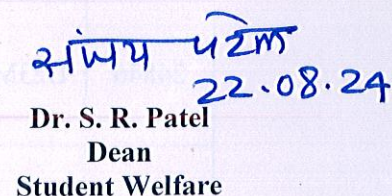 संजय पटेल
22.08.24
Dr. S. R. Patel
Dean
Student Welfare